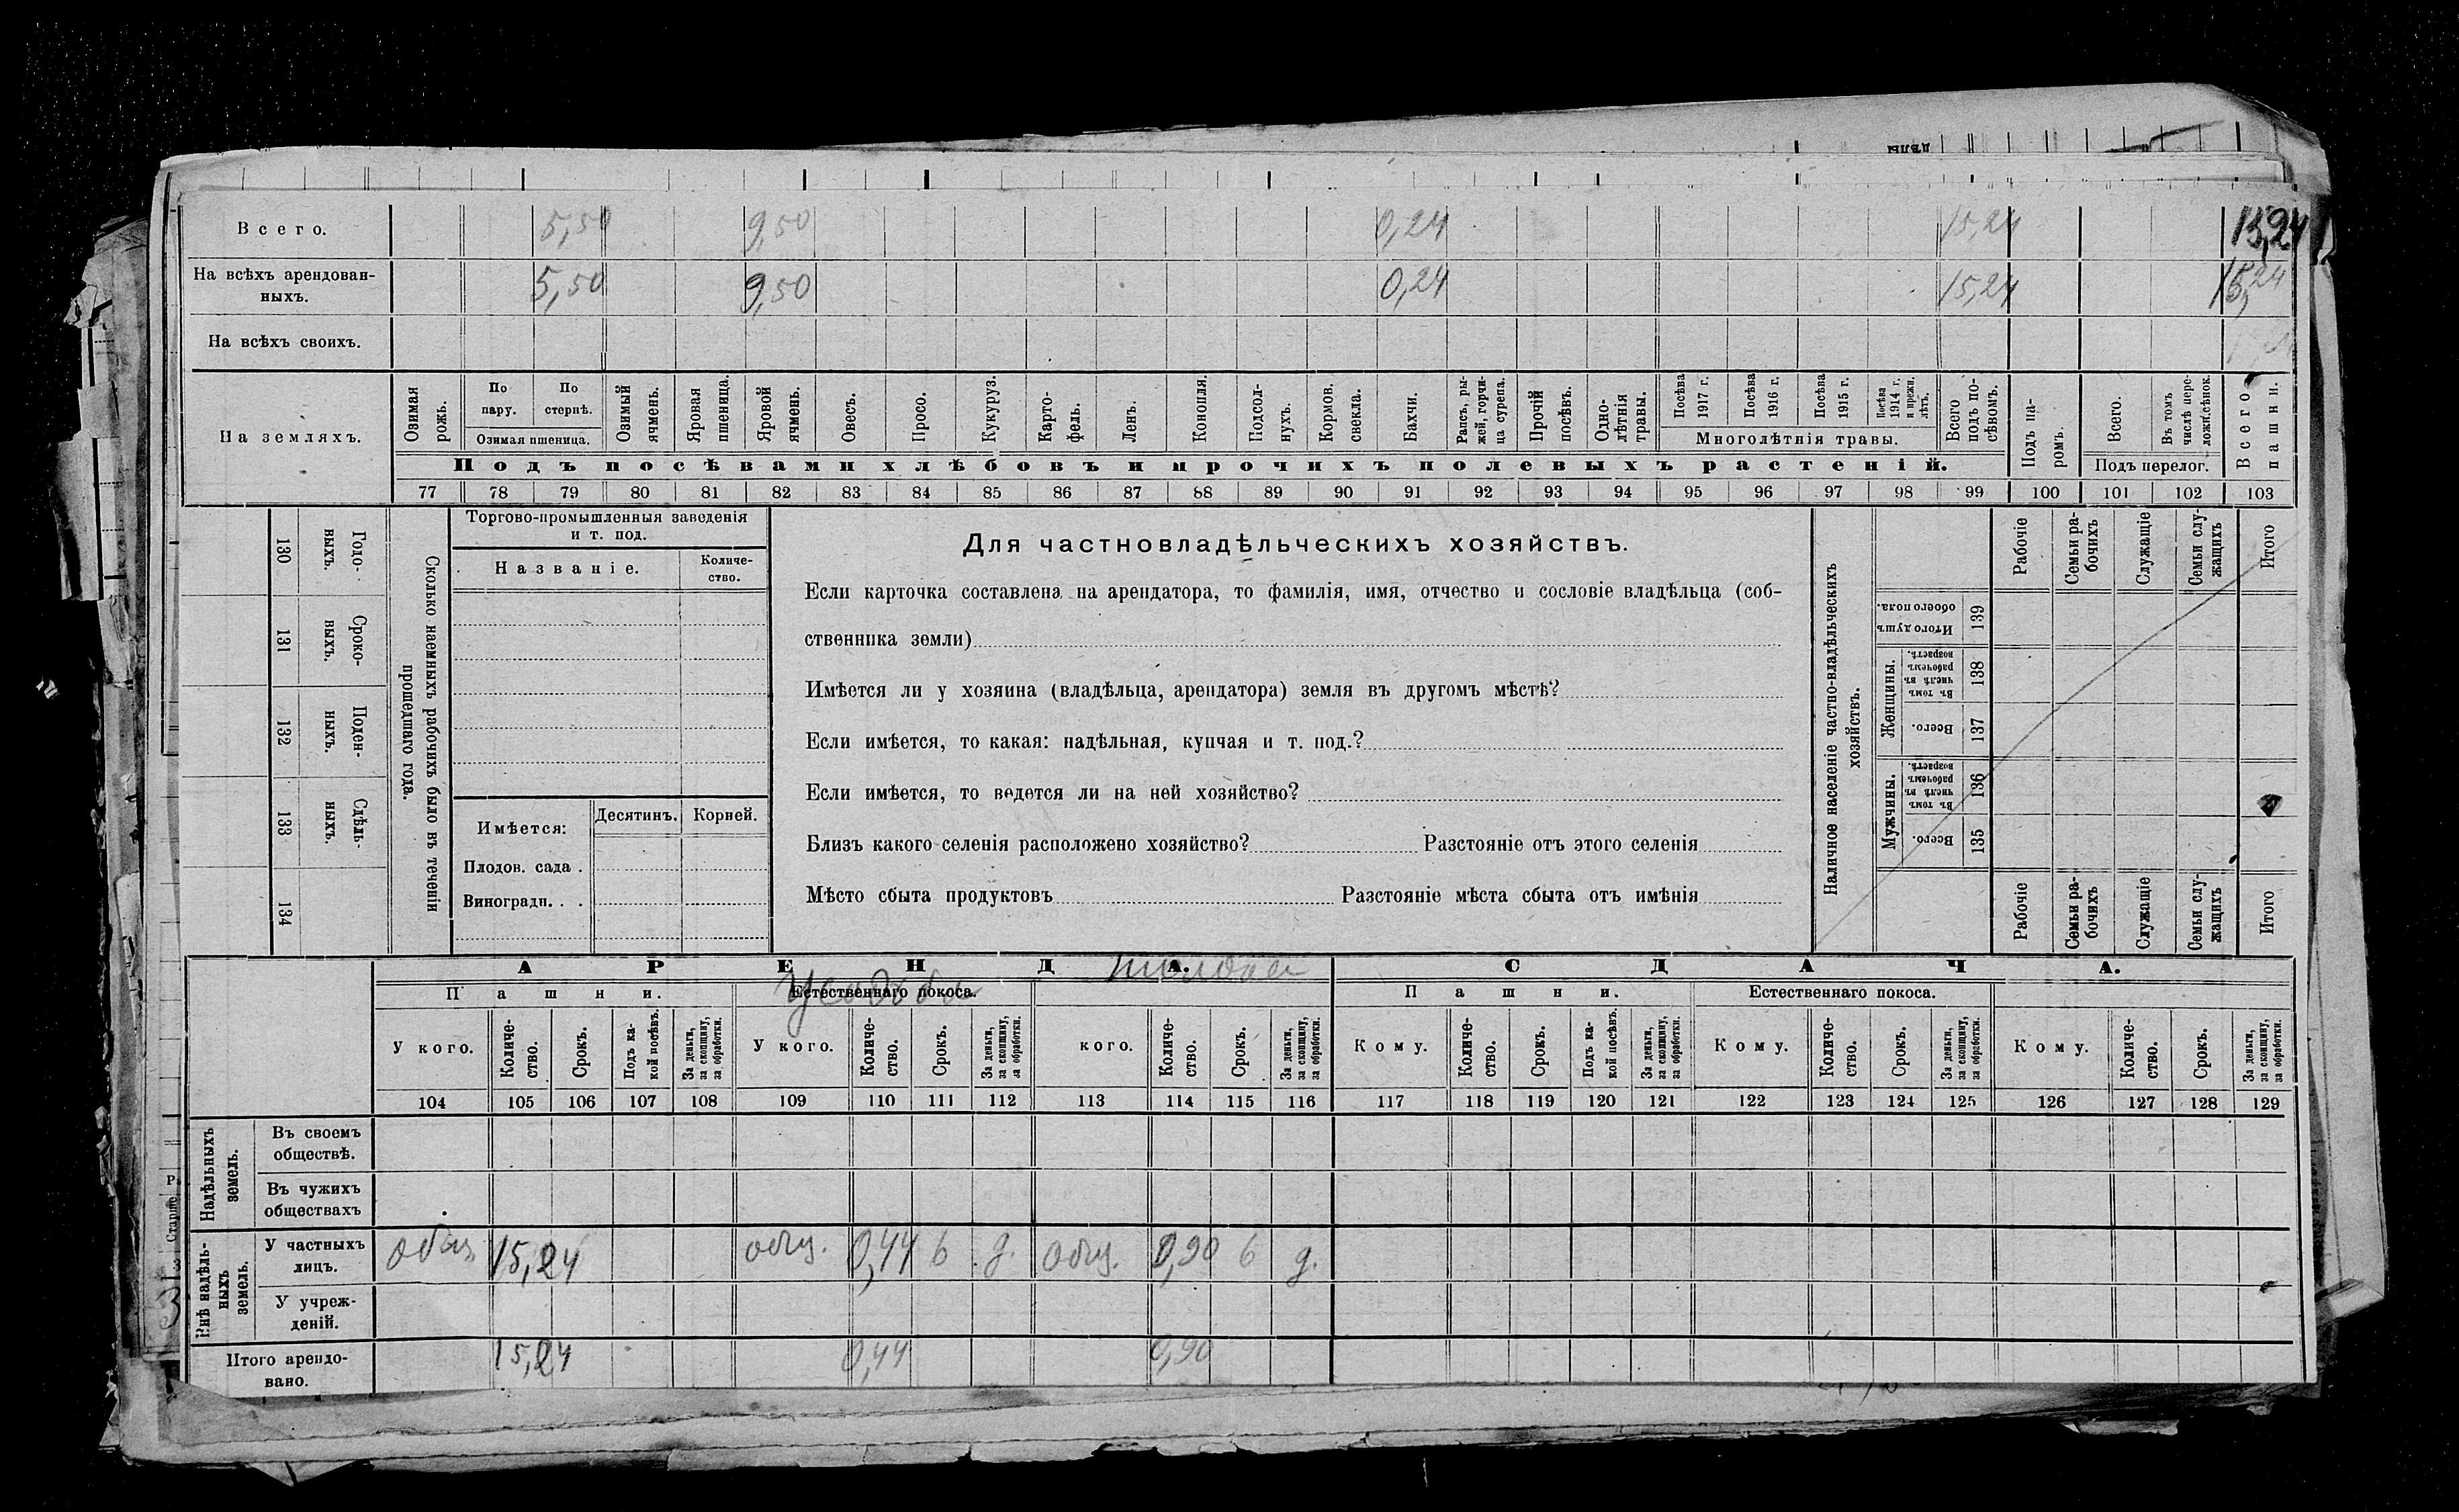 Всего. 5,50 9,50 0,24 15,24 15,24
На всѣхъ арендован-
ныхъ. 5,50 9,50 0,24 15,24 15,24
На всѣхъ своихъ.
На земляхъ.
Озимая рожь.
По пару.
По стернѣ.
Озимая пшеница.
Озимый ячмень.
Яровая пшеница.
Яровой ячмень.
Овесъ.
Просо.
Кукуруз.
Карто-
фель.
Ленъ.
Конопля.
Подсол-
нухъ.
Кормов. свекла.
Бахчи.
Рапсъ, ры-
жей, горчи-
ца сурепа.
Прочій посѣвъ.
Одно-
лѣтнія травы.
Посѣва 1917 г.
Посѣва 1916 г.
Посѣва 1915 г.
Посѣва 1914 г. и прежн. лѣтъ.
Многолѣтнія травы.
Всего подъ по-
сѣвомъ.
Подъ па-
ромъ.
Всего.
Въ томъ числѣ пере-
ложн.сѣнок.
Подъ перелог.
Всего пашни.
Подъ посѣвами хлѣбовъ и прочихъ полевыхъ растеній.
77 78 79 80 81 82 83 84 85 86 87 88 89 90 91 92 93 94 95 96 97 98 99 100 101 102 103
130 Годо-
ныхъ.
131 Сроко-
выхъ.
132 Поден-
ныхъ.
133 Сдѣль-
ныхъ.
134
Сколько наемныхъ рабочихъ было въ теченіи
прошедшаго года.
Торгово-промышленныя заведенія
и т. под.
Названіе.
Количе-
ство.
Имѣется: Десятинъ. Корней.
Плодов. сада .
Виноградн. . .
Для частновладѣльческихъ хозяйствъ.
Если карточка составлена на арендатора, то фамилія, имя, отчество и сословіе владѣльца (соб-
ственника земли)
Имѣется ли у хозяина (владѣльца, арендатора) земля въ другомъ мѣстѣ?
Если имѣется, то какая: надѣльная, купчая и т. под.?
Если имѣется, то ведется ли на ней хозяйство?
Близъ какого селенія расположено хозяйство? Разстояніе отъ этого селенія
Мѣсто сбыта продуктовъ Разстояніе мѣста сбыта отъ имѣнія
Наличное населеніе частно-владѣльческихъ
хозяйствъ.
Рабочіе
Семьи ра-
бочихъ
Служащіе
Семьи слу-
жащихъ
Итого
Итого душъ обоего пола. 139
Женщины.
Въ томъ числѣ въ рабочемъ возрастѣ. 138
Всего. 137
Мужчины.
Въ томъ числѣ въ рабочемъ возрастѣ. 136
Всего. 135
Рабочіе
Семьи ра-
бочихъ
Служащіе
Семьи слу-
жащихъ
Итого
АРЕНДА. СДАЧА.
Пашни. Естественнаго покоса. Пашни. Естественнаго покоса.
У кого. Количе-
ство. Срокъ. Подъ ка-
кой посѣвъ. За деньги, за скопщину, за обработки.
У кого. Количе-
ство. Срокъ. За деньги, за скопщину, за обработки.
кого. Количе-
ство. Срокъ. За деньги, за скопщину, за обработки.
Кому. Количе-
ство. Срокъ. Подъ ка-
кой посѣвъ. За деньги, за скопщину, за обработки.
Кому. Количе-
ство. Срокъ. За деньги, за скопщину, за обработки.
Кому. Количе-
ство. Срокъ. За деньги, за скопщину, за обработки.
104 105 106 107 108 109 110 111 112 113 114 115 116 117 118 119 120 121 122 123 124 125 126 127 128 129
Надѣльныхъ
земель.
Въ своемъ
обществѣ.
Въ чужихъ
обществахъ
Внѣ надѣль-
ныхъ
земель.
У частныхъ
лицъ. общ. 15,24 общ. 0,44 6 д. общ. 0,90 6 д.
У учреж-
деній.
Итого арендо-
вано. 15,24 0,44 0,90